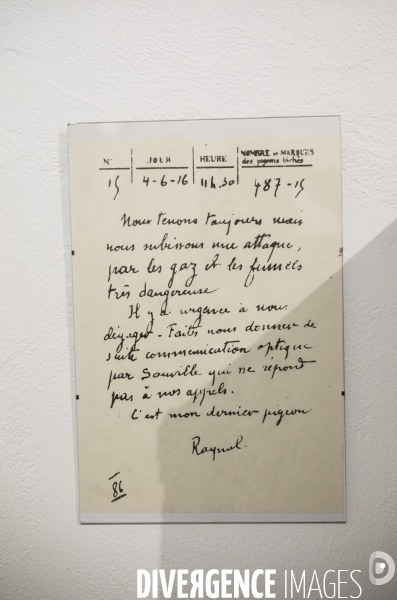 N° JOUR HEURE NOMBRE et MARQUES
des pigeons lâchés
15 4-6-16 11h.30 487-15
Nous tenons toujours mais
nous subissons une attaque,
par les gaz et les fumées
très dangereuse.
Il y a urgence à nous
dégager - Faites nous donner de
suite communication optique
par Souville qui ne répond
pas à nos appels.
C'est mon dernier pigeon
Raynal.
86
DIVERGENCE IMAGES